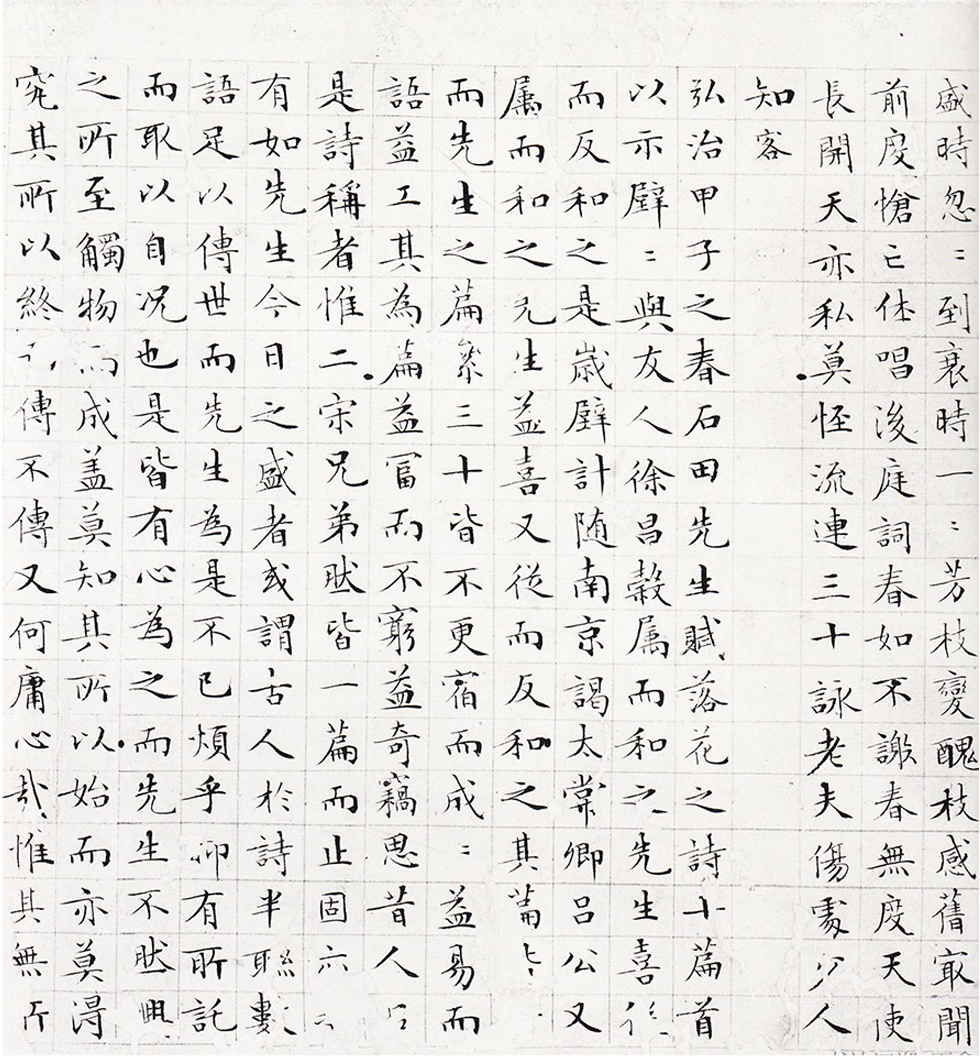 盛時忽〻到衰時一〻芳枝變醜枝感舊冣聞
前度愴亡休唱後庭詞春如不謝春無度天使
長開天亦私莫怪流連三十詠老夫傷處少人
知客
弘治甲子之春石田先生賦落花之詩十篇首
以示璧〻與友人徐昌穀属而和之先生喜從
而反和之是歲璧計随南京謁太常卿呂公又
属而和之先生益喜又從而反和之其篇
而先生之篇累三十皆不更宿而成〻益易而
語益工其為篇益富而不窮益奇竊思昔人
是詩稱者惟二宋兄弟然皆一篇而止固六
有如先生今日之盛者或謂古人於詩半聯數
語足以傳世而先生為是不已煩乎抑有所託
而取以自况也是皆有心為之而先生不然興
之所至觸物而成盖莫知其所以始而亦莫得
究其所以終傳不傳又何庸心哉惟其無所